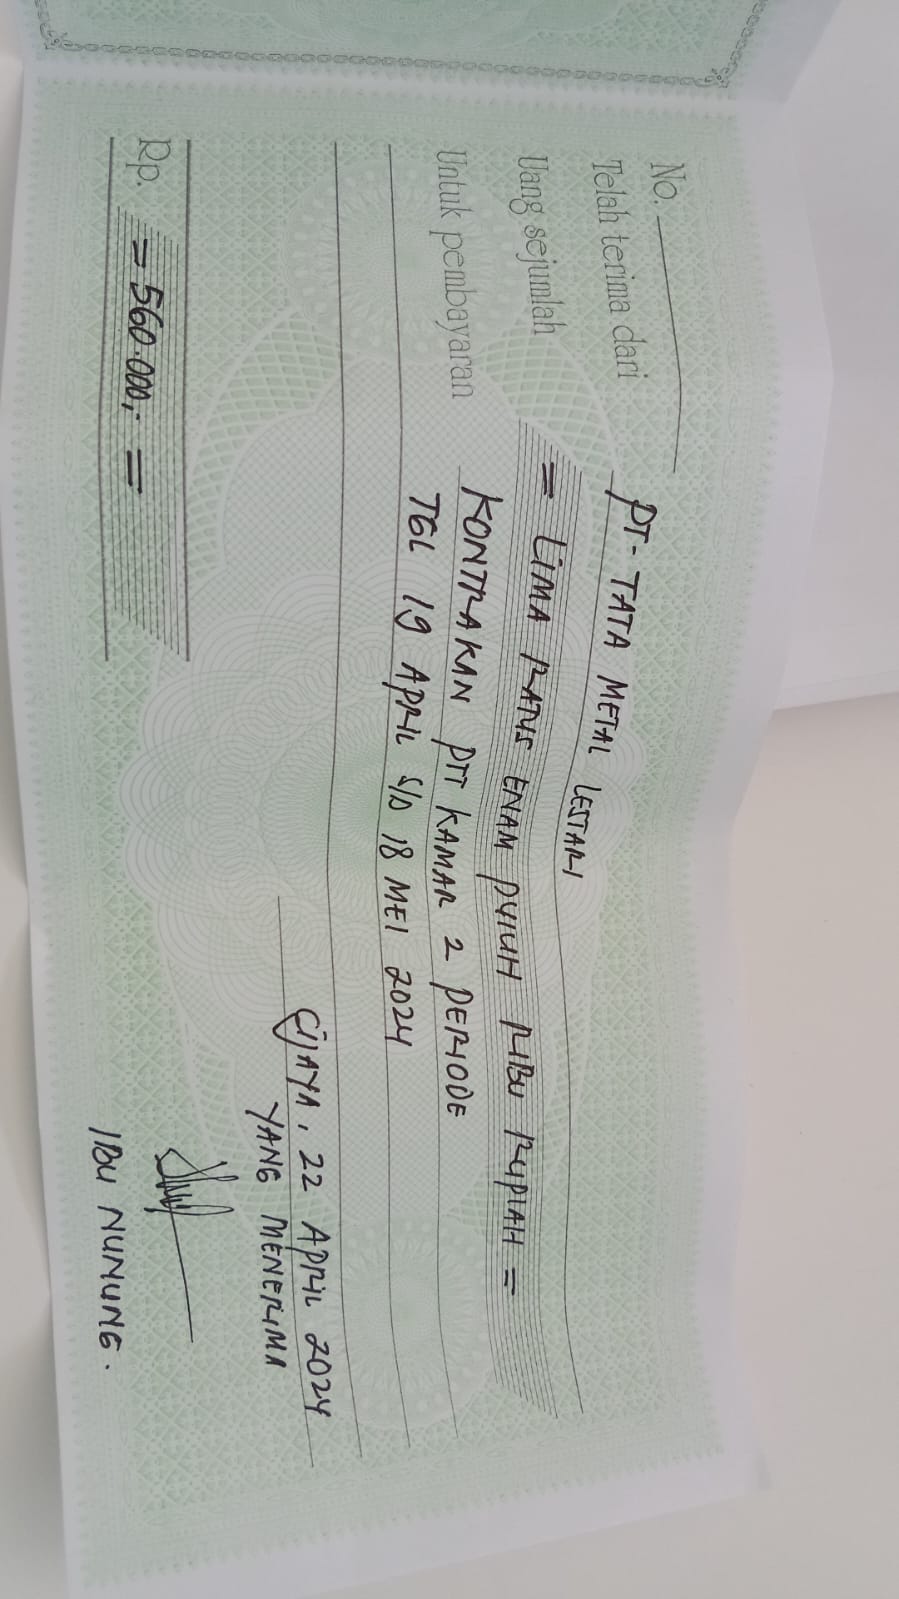 No.
Telah terima dari PT-TATA METAL LESTARI
Uang sejumlah = LIMA RATUS ENAM PULUH RIBU RUPIAH =
Untuk pembayaran KONTRAKAN PTT KAMAR 2 PERIODE
TGL 19 APRIL S/D 18 MEI 2024
CIJAYA, 22 APRIL 2024
YANG MENERIMA
Rp. = 560.000,- =
IBU NUNUNG.